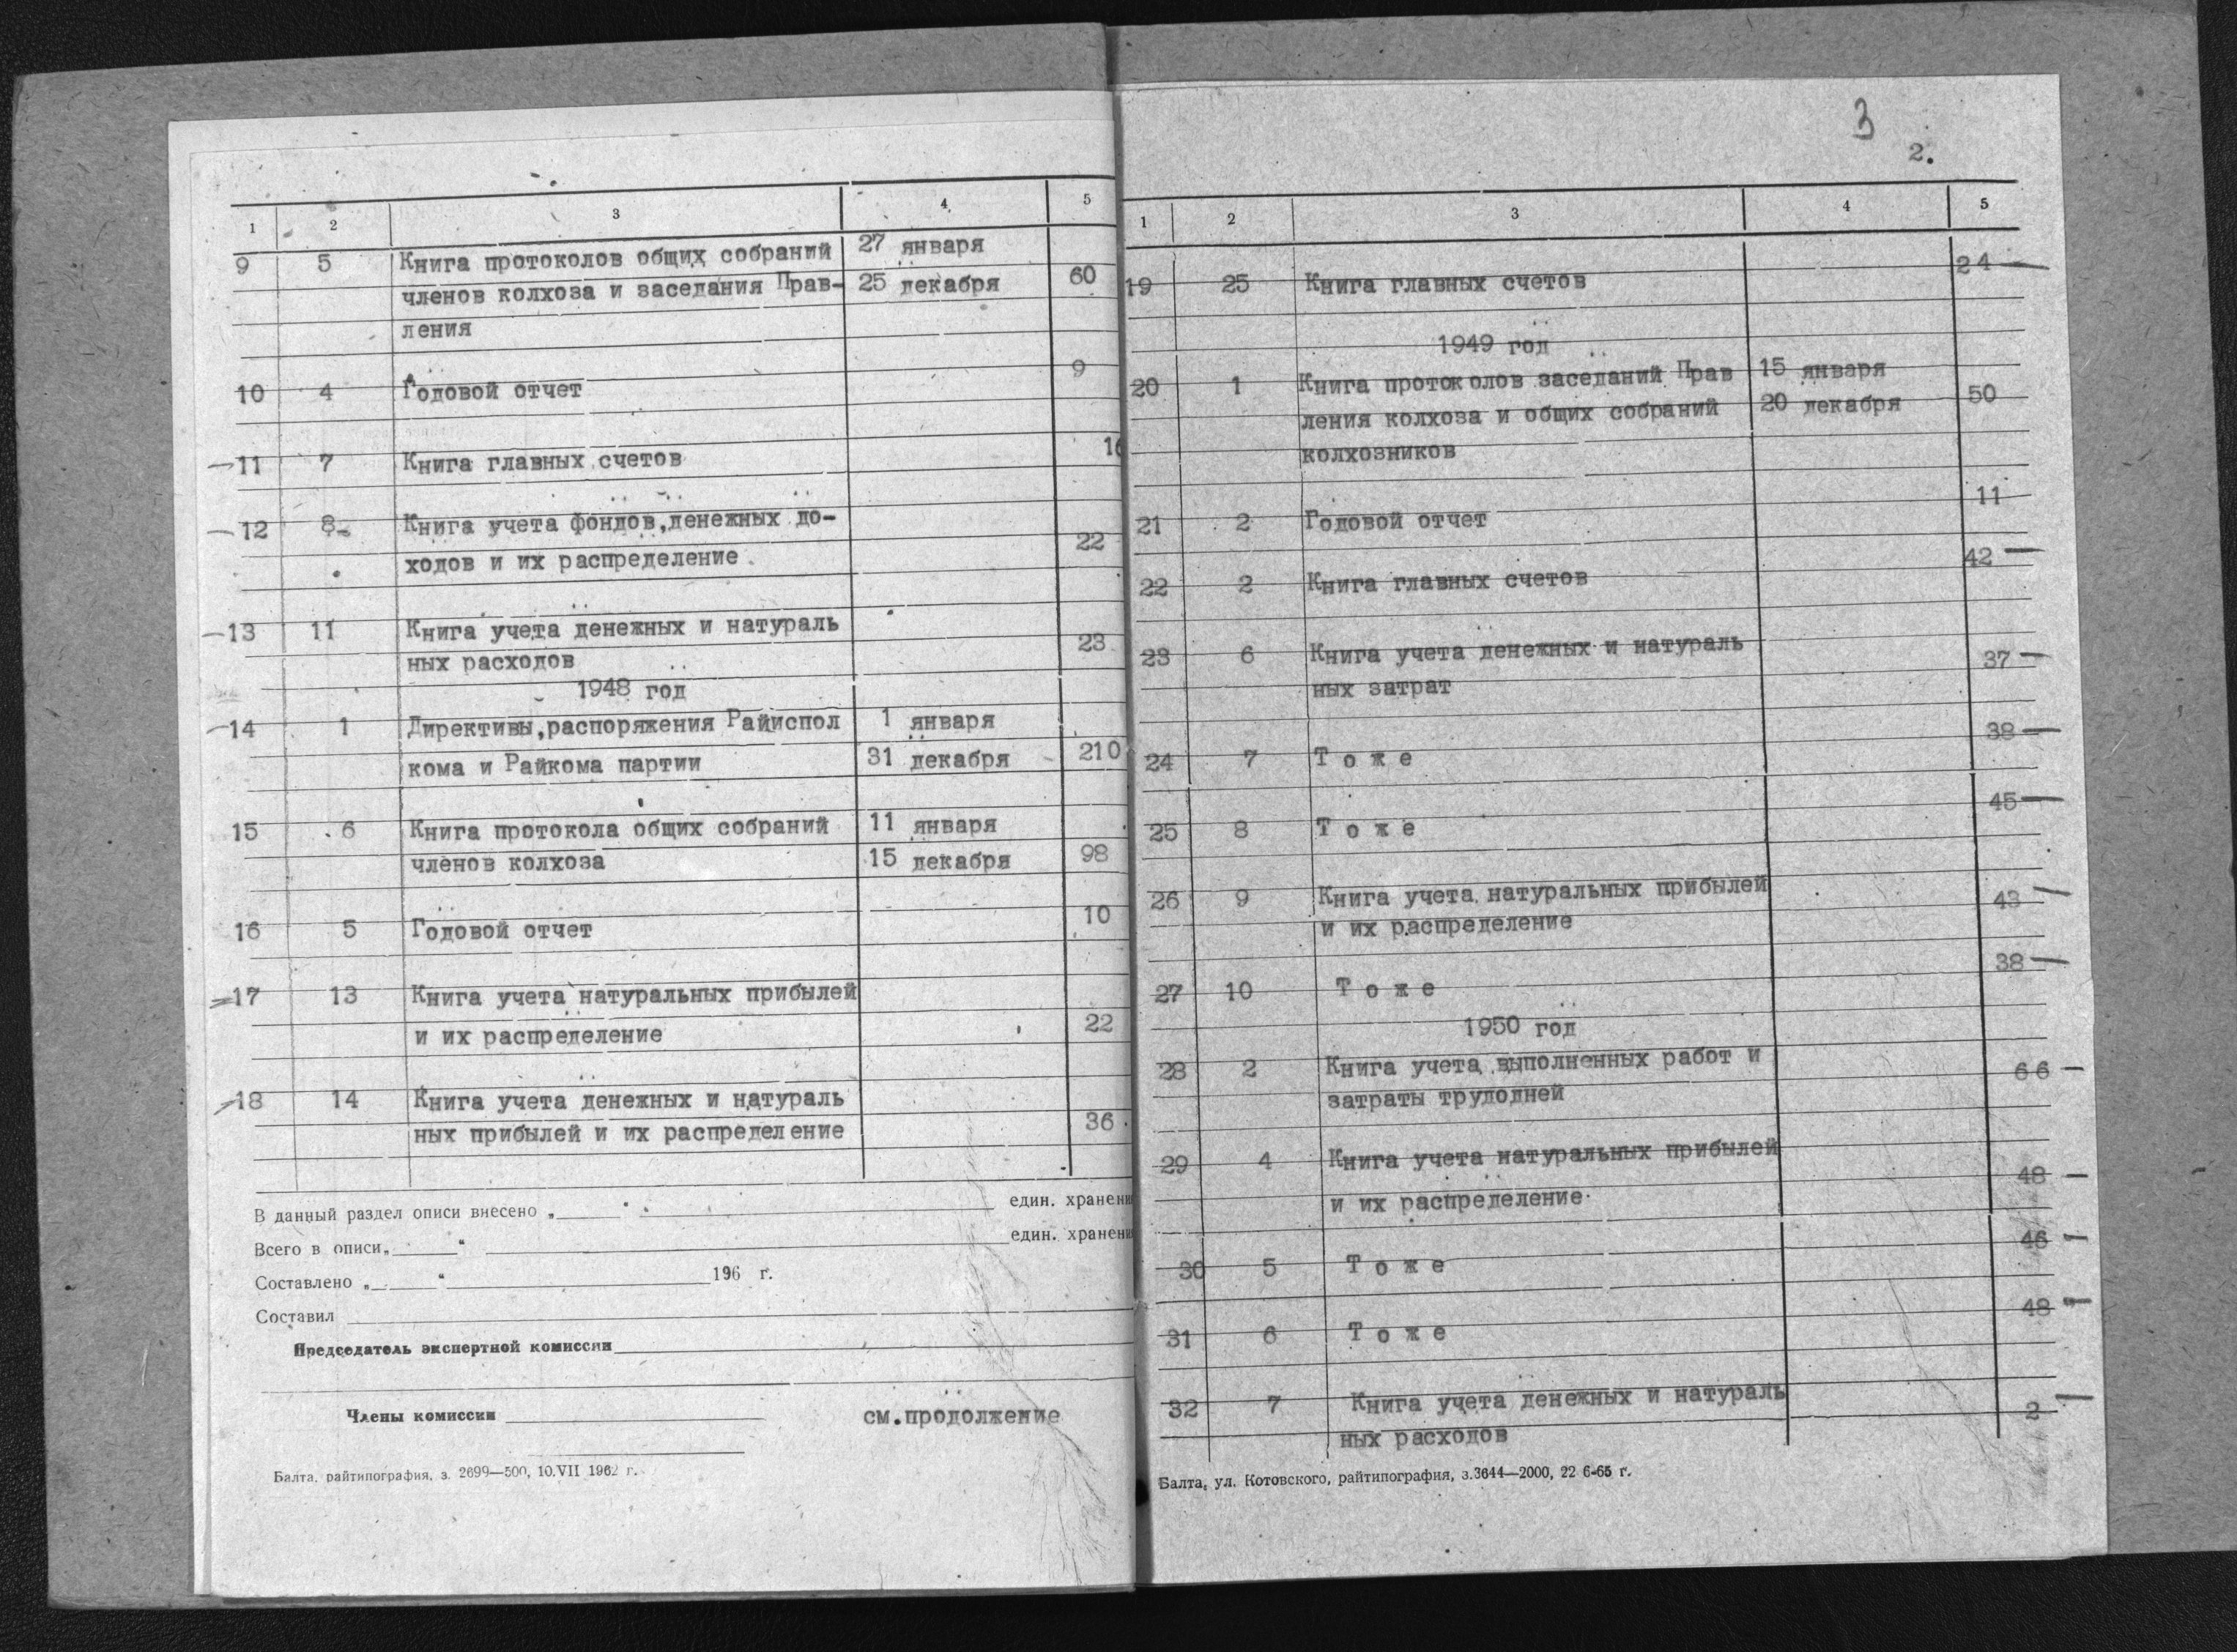 1 2 3 4 5
9 5 Книга протоколов общих собраний 27 января
членов колхоза и заседания Прав- 25 декабря 60
ления
9
10 4 Годовой отчет
11 7 Книга главных счетов
12 8 Книга учета фондов,денежных до-
ходов и их распределение 22
13 11 Книга учета денежных и натураль
ных расходов 23
1948 год
14 1 Директивы,распоряжения Райиспол 1 января
кома и Райкома партии 31 декабря 210
15 6 Книга протокола общих собраний 11 января
членов колхоза 15 декабря 98
16 5 Годовой отчет 10
17 13 Книга учета натуральных прибылей
и их распределение 22
18 14 Книга учета денежных и натураль
ных прибылей и их распределение 36
В данный раздел описи внесено „ “ един. хранени
Всего в описи„ “ един. хранени
Составлено „ “ 196 г.
Составил
Председатель экспертной комиссии
Члены комиссии см.продолжение
Балта, райтипография, з. 2699—500, 10.VII 1962 г.
3
2.
1 2 3 4 5
19 25 Книга главных счетов 24
1949 год
20 1 Книга протоколов заседаний Прав 15 января
ления колхоза и общих собраний 20 декабря 50
колхозников
21 2 Годовой отчет 11
22 2 Книга главных счетов 42
23 6 Книга учета денежных и натураль
ных затрат 37
24 7 Тоже 38
25 8 Тоже 45
26 9 Книга учета натуральных прибылей 43
и их распределение
27 10 Тоже 38
1950 год
28 2 Книга учета выполненных работ и 66
затраты трудодней
29 4 Книга учета натуральных прибылей
и их распределение 48
30 5 Тоже 46
31 6 Тоже 48
32 7 Книга учета денежных и натураль
ных расходов 2
Балта, ул. Котовского, райтипография, з.3644—2000, 22 6-65 г.